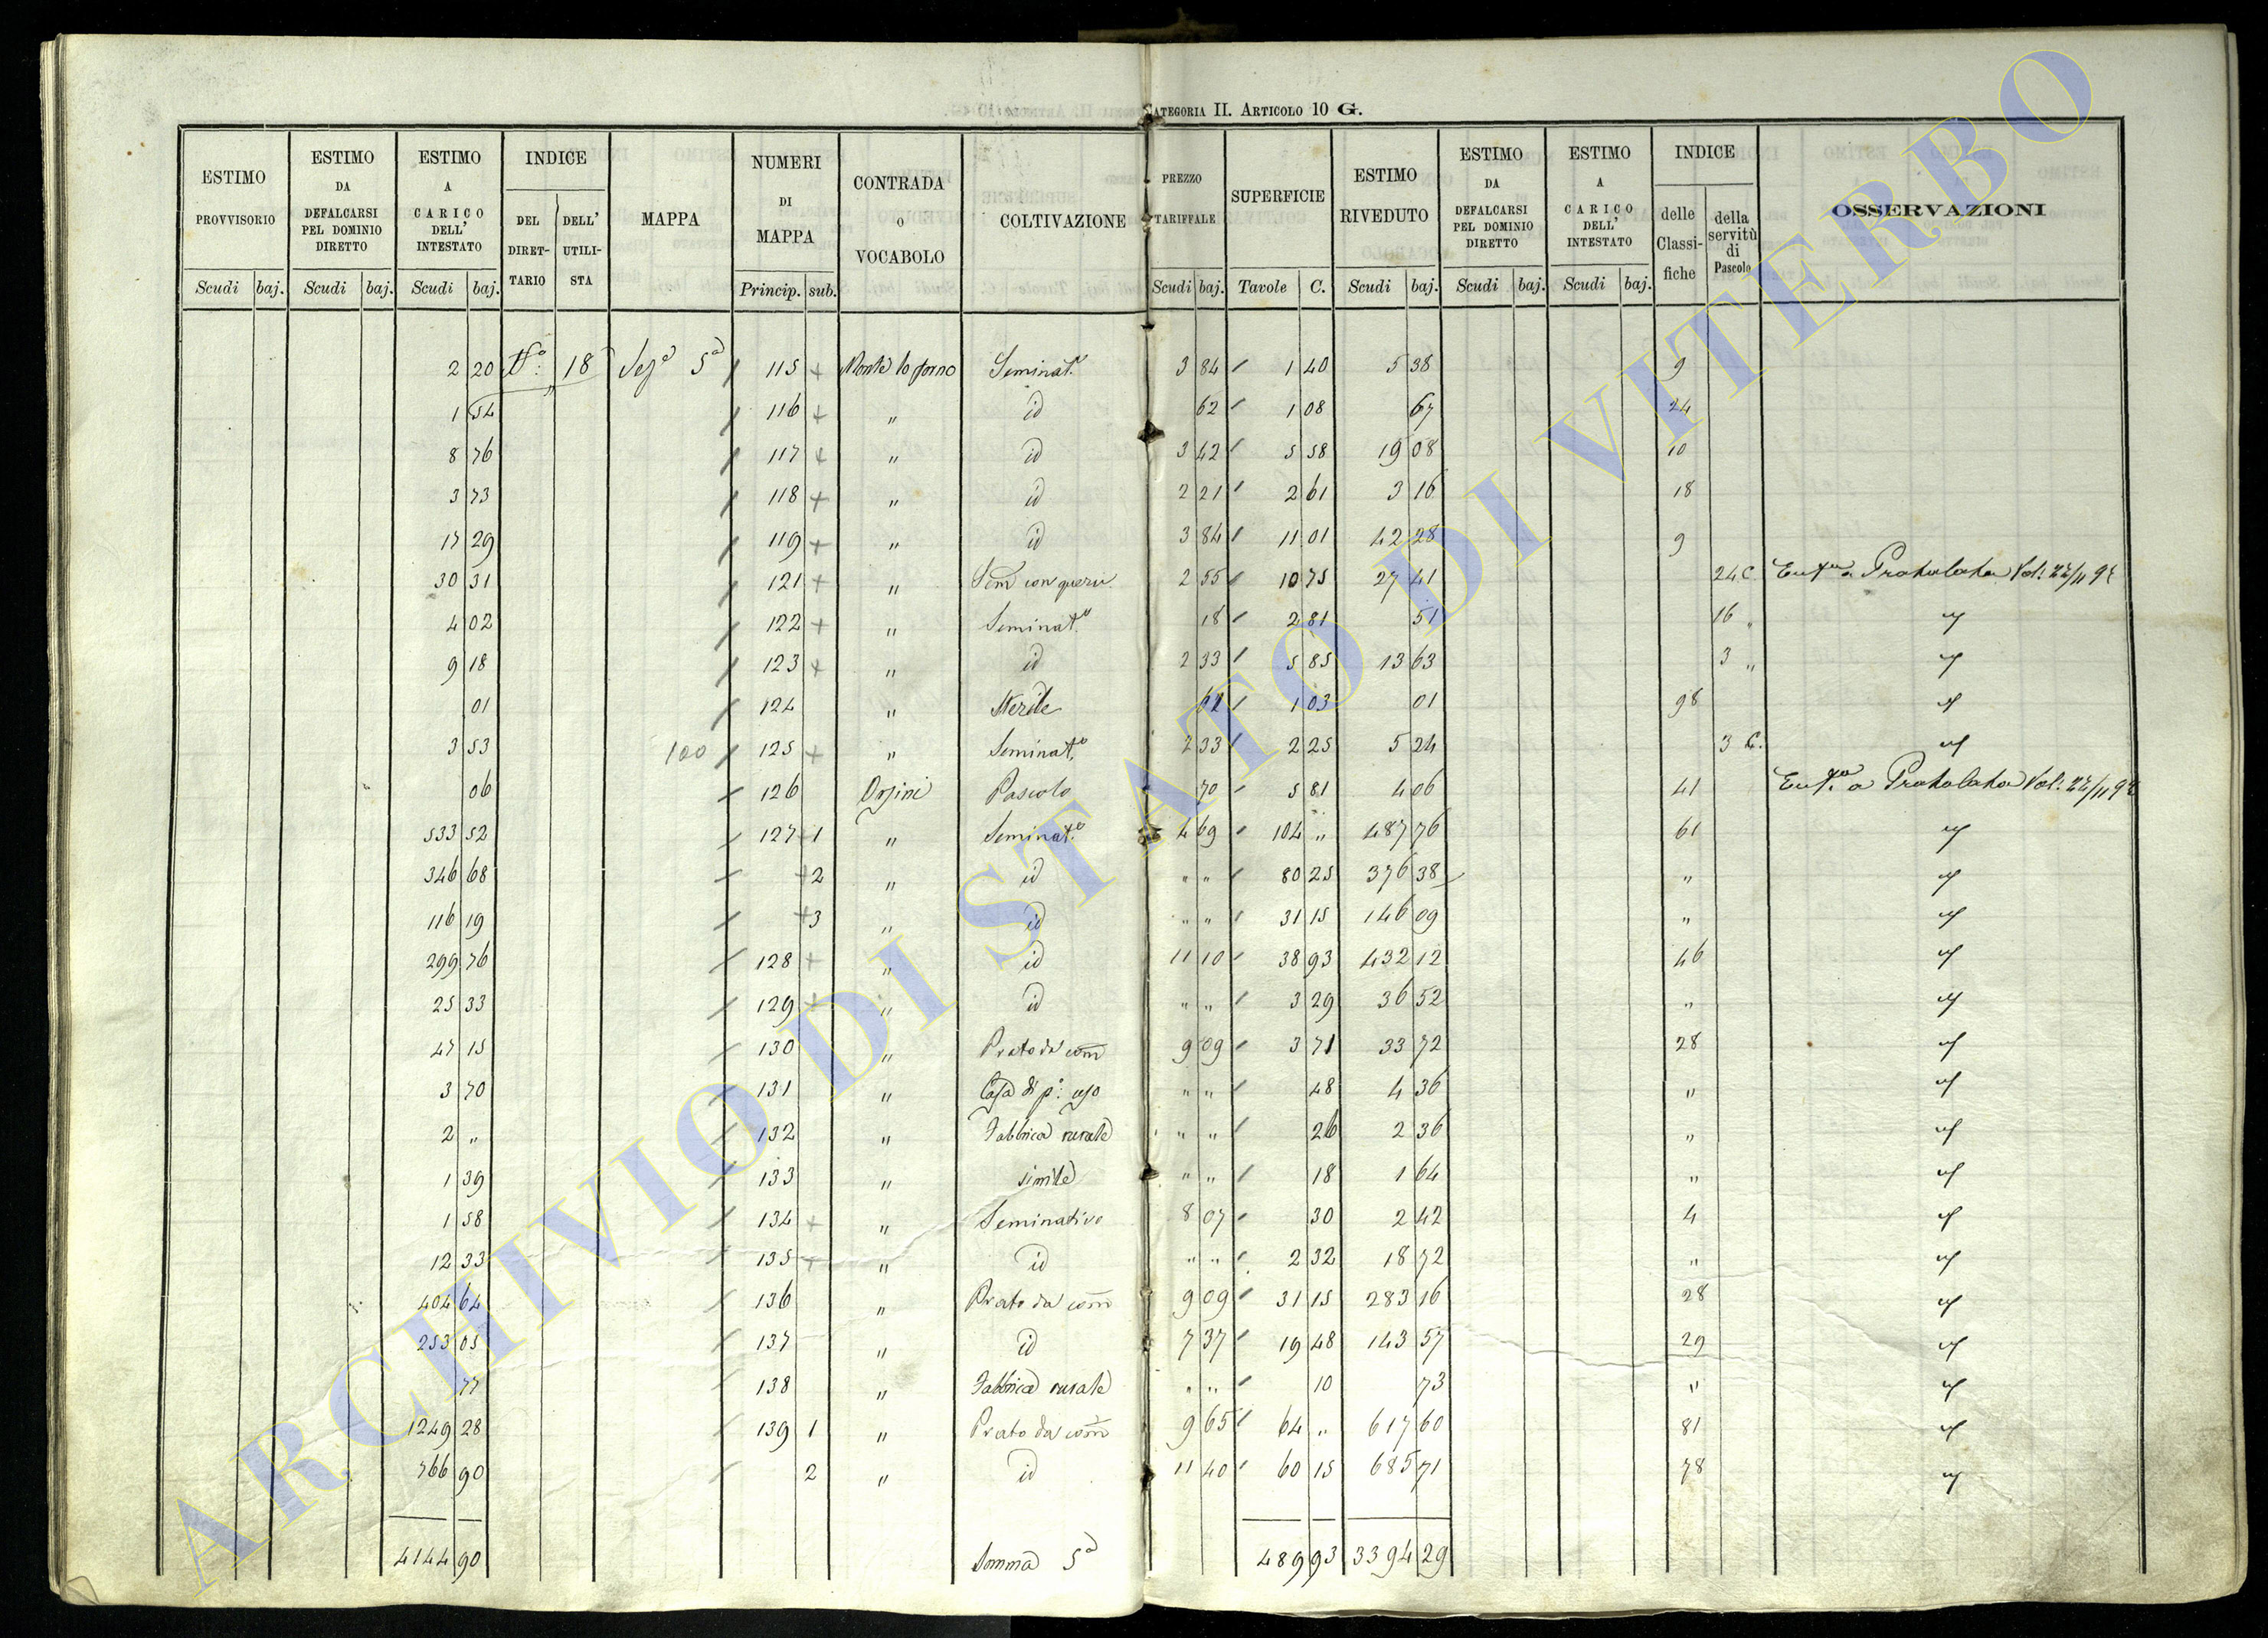 CATEGORIA II. ARTICOLO 10 G.
ESTIMO PROVVISORIO Scudi baj. ESTIMO DA DEFALCARSI PEL DOMINIO DIRETTO Scudi baj. ESTIMO A CARICO DELL' INTESTATO Scudi baj. INDICE DEL DIRET-TARIO DELL' UTILI-STA MAPPA NUMERI DI MAPPA Princip. sub. CONTRADA o VOCABOLO COLTIVAZIONE PREZZO TARIFFALE Scudi baj. SUPERFICIE Tavole C. ESTIMO RIVEDUTO Scudi baj. ESTIMO DA DEFALCARSI PEL DOMINIO DIRETTO Scudi baj. ESTIMO A CARICO DELL' INTESTATO Scudi baj. INDICE delle Classi-fiche della servitù di Pascolo OSSERVAZIONI
2 20 18 Sez.a 5a 115 + Monte lo forno Seminat.o 3 84 1 40 5 38 9
1 54 116 + " id 62 1 08 67 24
8 76 117 + " id 3 42 5 58 19 08 10
3 73 118 + " id 2 21 2 61 3 16 18
17 29 119 + " id 3 84 11 01 42 28 9
30 31 121 + " Sem con querc. 2 55 10 75 27 41 24 C.
4 02 122 + " Seminat.o 18 2 81 51 16 "
9 18 123 + " id 2 33 5 85 13 63 3 "
01 124 " Sterile 1 03 01 98
3 53 100 125 + " Seminat.o 2 33 2 25 5 24 3 C.
06 126 Orsini Pascolo 70 5 81 4 06 41
533 52 127 + 1 " Seminat.o 4 69 104 " 487 76 61
346 68 + 2 " id " " 80 25 376 38 "
116 19 + 3 " id " " 31 15 146 09 "
299 76 128 + " id 11 10 38 93 432 12 46
25 33 129 + " id " " 3 29 36 52 "
47 15 130 " Prato da com 9 09 3 71 33 72 28
3 70 131 " Casa di p.o uso " " 48 4 36 "
2 " 132 " Fabbrica rurale " " 26 2 36 "
1 39 133 " simile " " 18 1 64 "
1 58 134 + " Seminativo 8 07 30 2 42 4
12 33 135 + " id " " 2 32 18 72 "
404 64 136 " Prato da com 9 09 31 15 283 16 28
253 05 137 " id 7 37 19 48 143 57 29
77 138 " Fabbrica rurale " " 10 73 "
1249 28 139 1 " Prato da com 9 65 64 " 617 60 81
766 90 2 " id 11 40 60 15 685 71 78
4144 90 Somma 5a 489 93 3394 29
ARCHIVIO DI STATO DI VITERBO